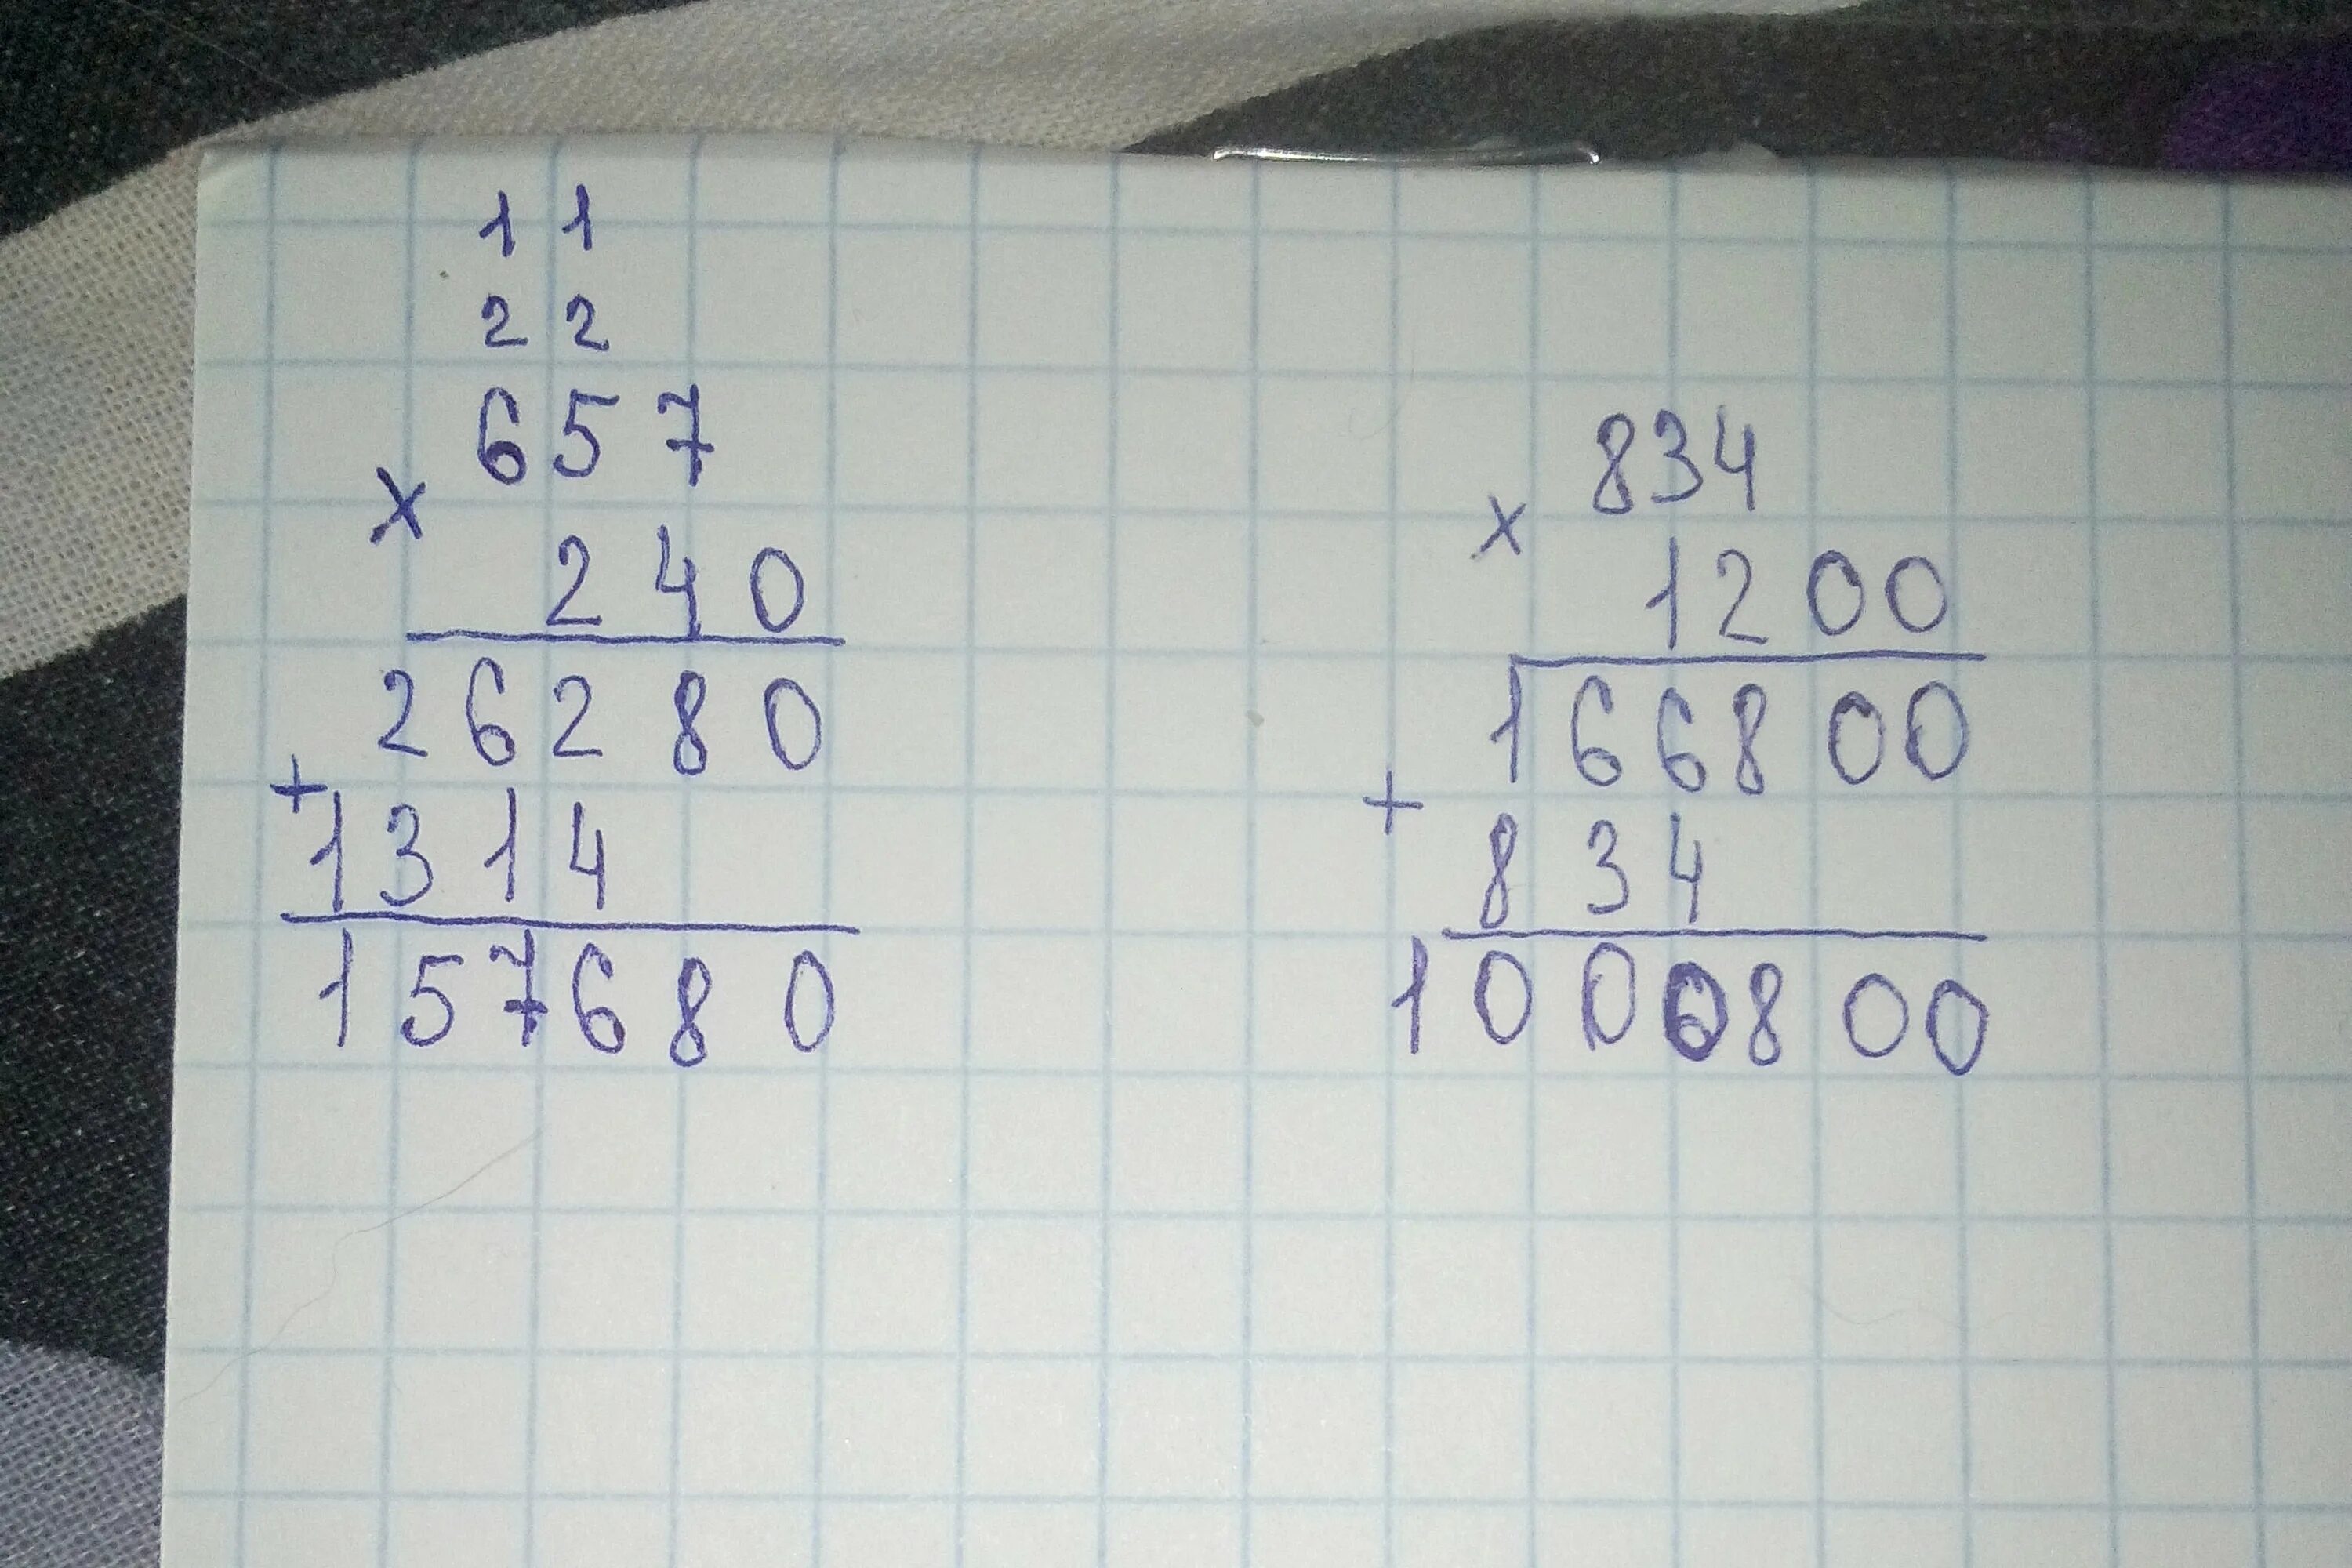 1 1
2 2
657
×
240
26280
+
1314
157680
834
×
1200
166800
+
834
1000800